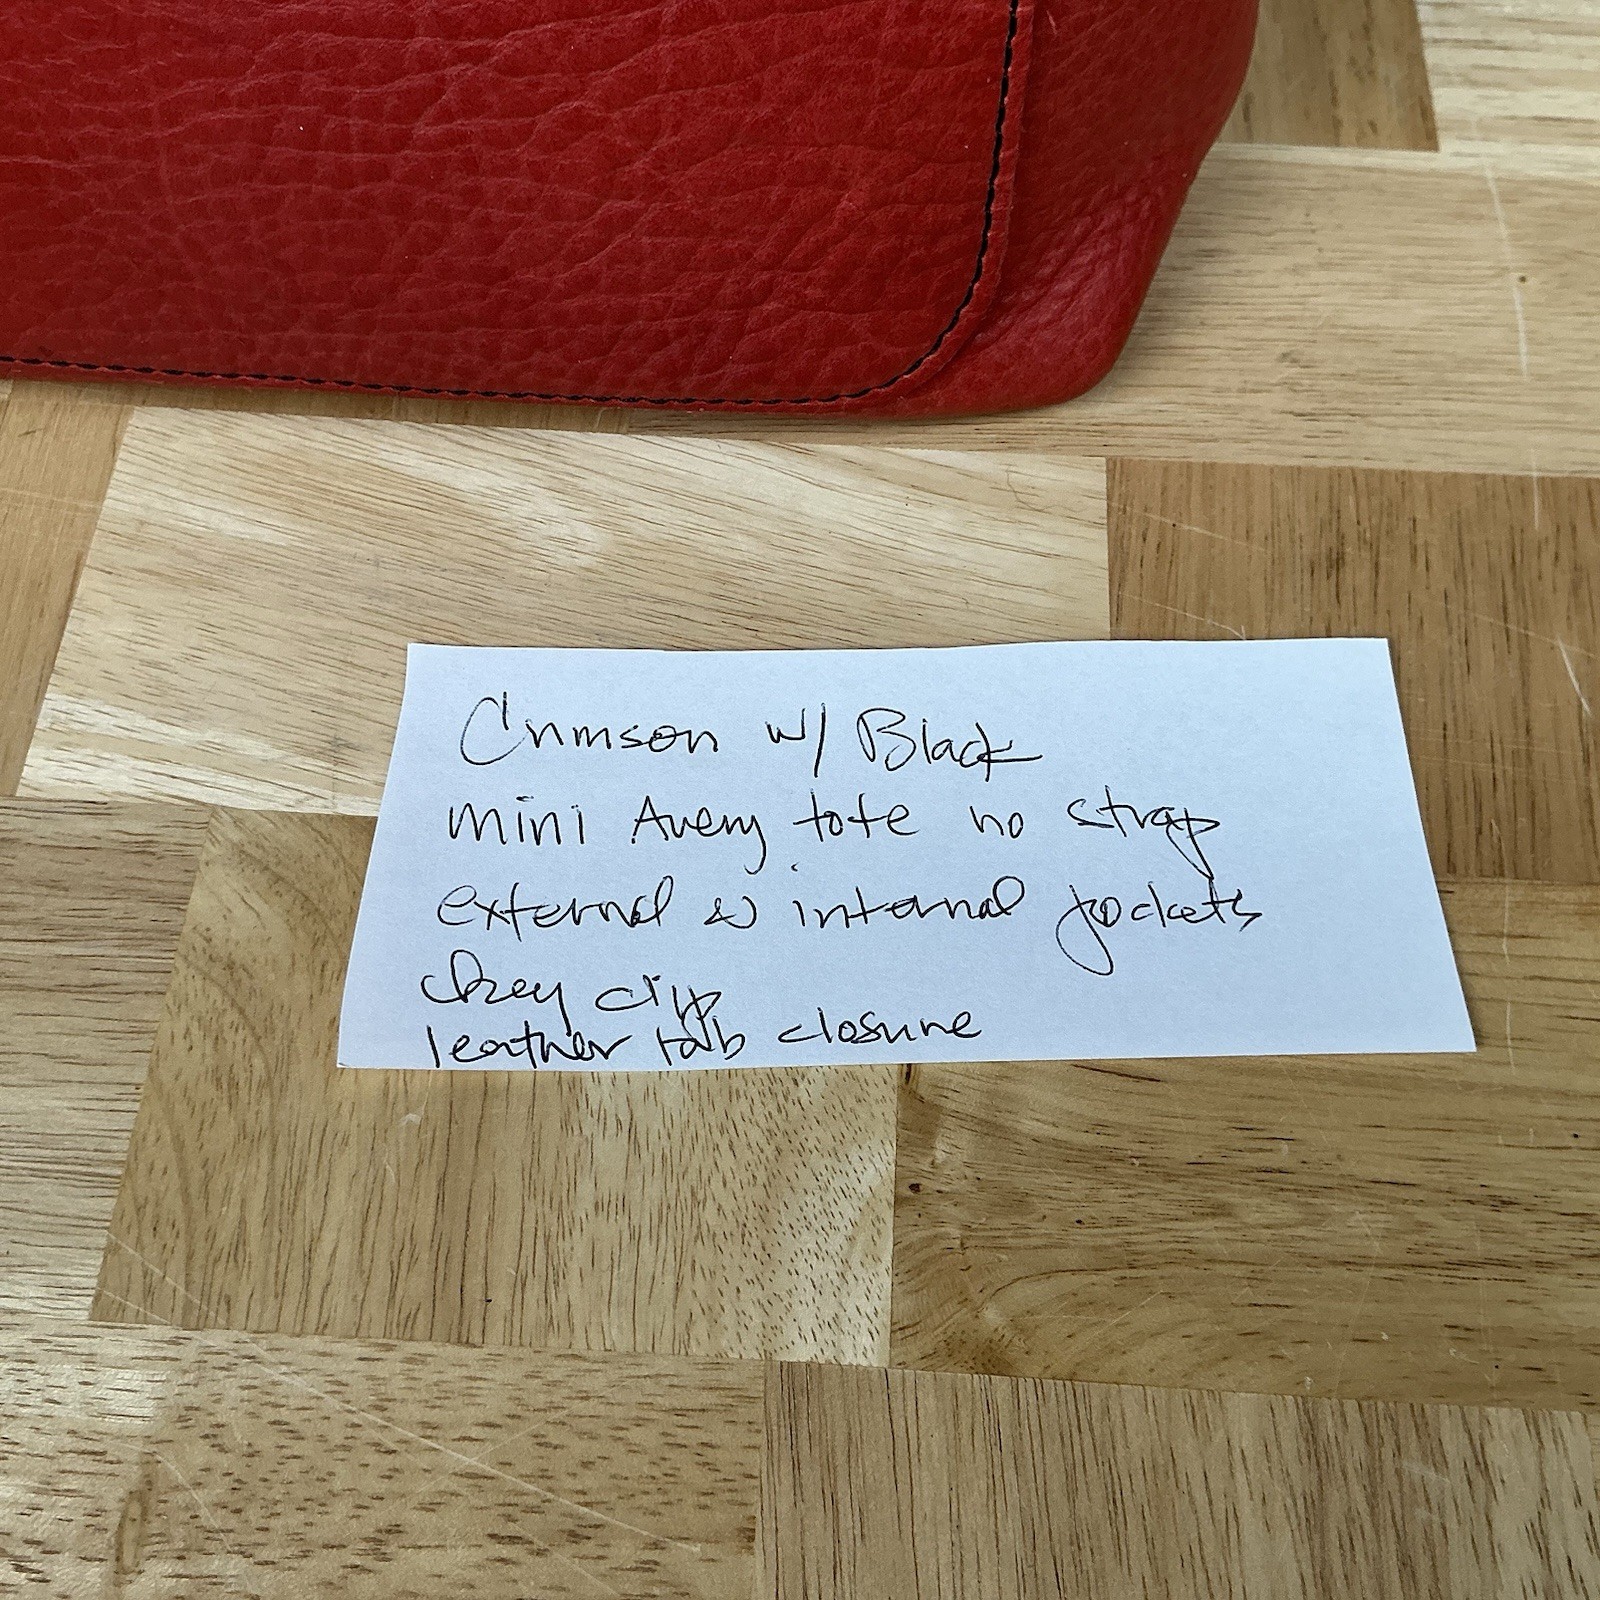 Crimson w/ Black
mini Avery tote no strap
external & internal pockets
key clip
leather tab closure